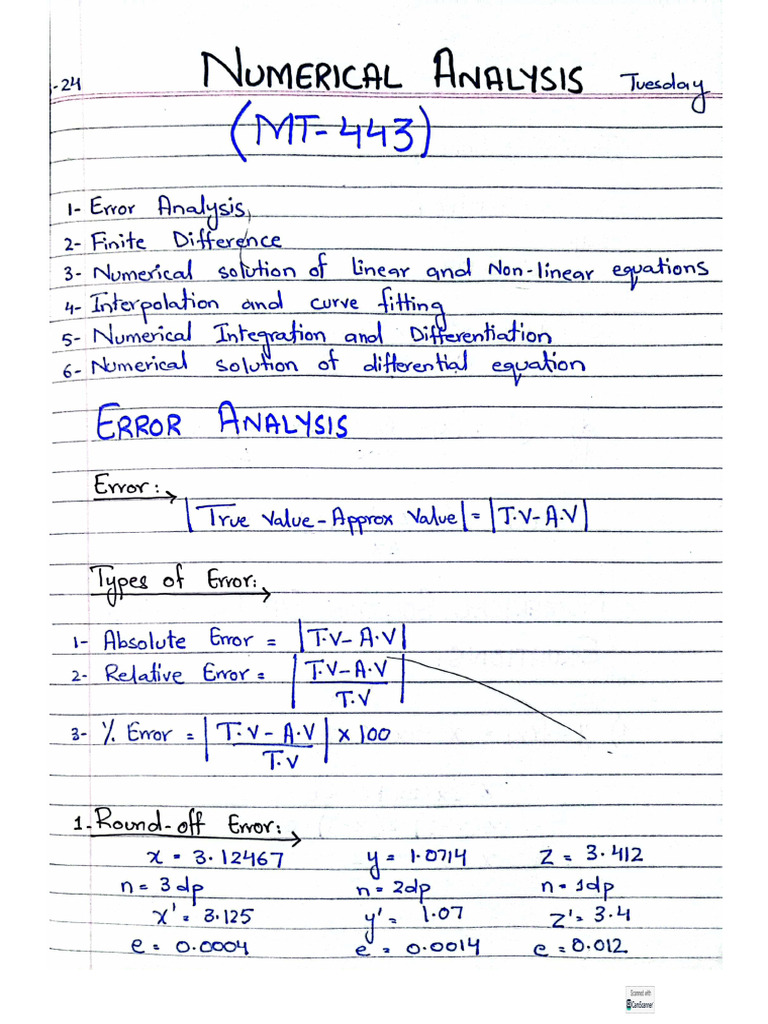 -24 NUMERICAL ANALYSIS Tuesday
(MT-443)
1- Error Analysis,
2- Finite Difference
3- Numerical solution of linear and Non-linear equations
4- Interpolation and curve fitting
5- Numerical Integration and Differentiation
6- Numerical solution of differential equation
ERROR ANALYSIS
Error:
|True value-Approx value| = |T.V-A.V|
Types of Error:
1- Absolute Error = |T.V-A.V|
2- Relative Error = |T.V-A.V / T.V|
3- % Error = |T.V-A.V / T.V| x 100
1- Round-off Error:
x = 3.12467 y = 1.0714 z = 3.412
n = 3dp n = 2dp n = 1dp
x' = 3.125 y' = 1.07 z' = 3.4
e = 0.0004 e = 0.0014 e = 0.012
Scanned with
CS CamScanner